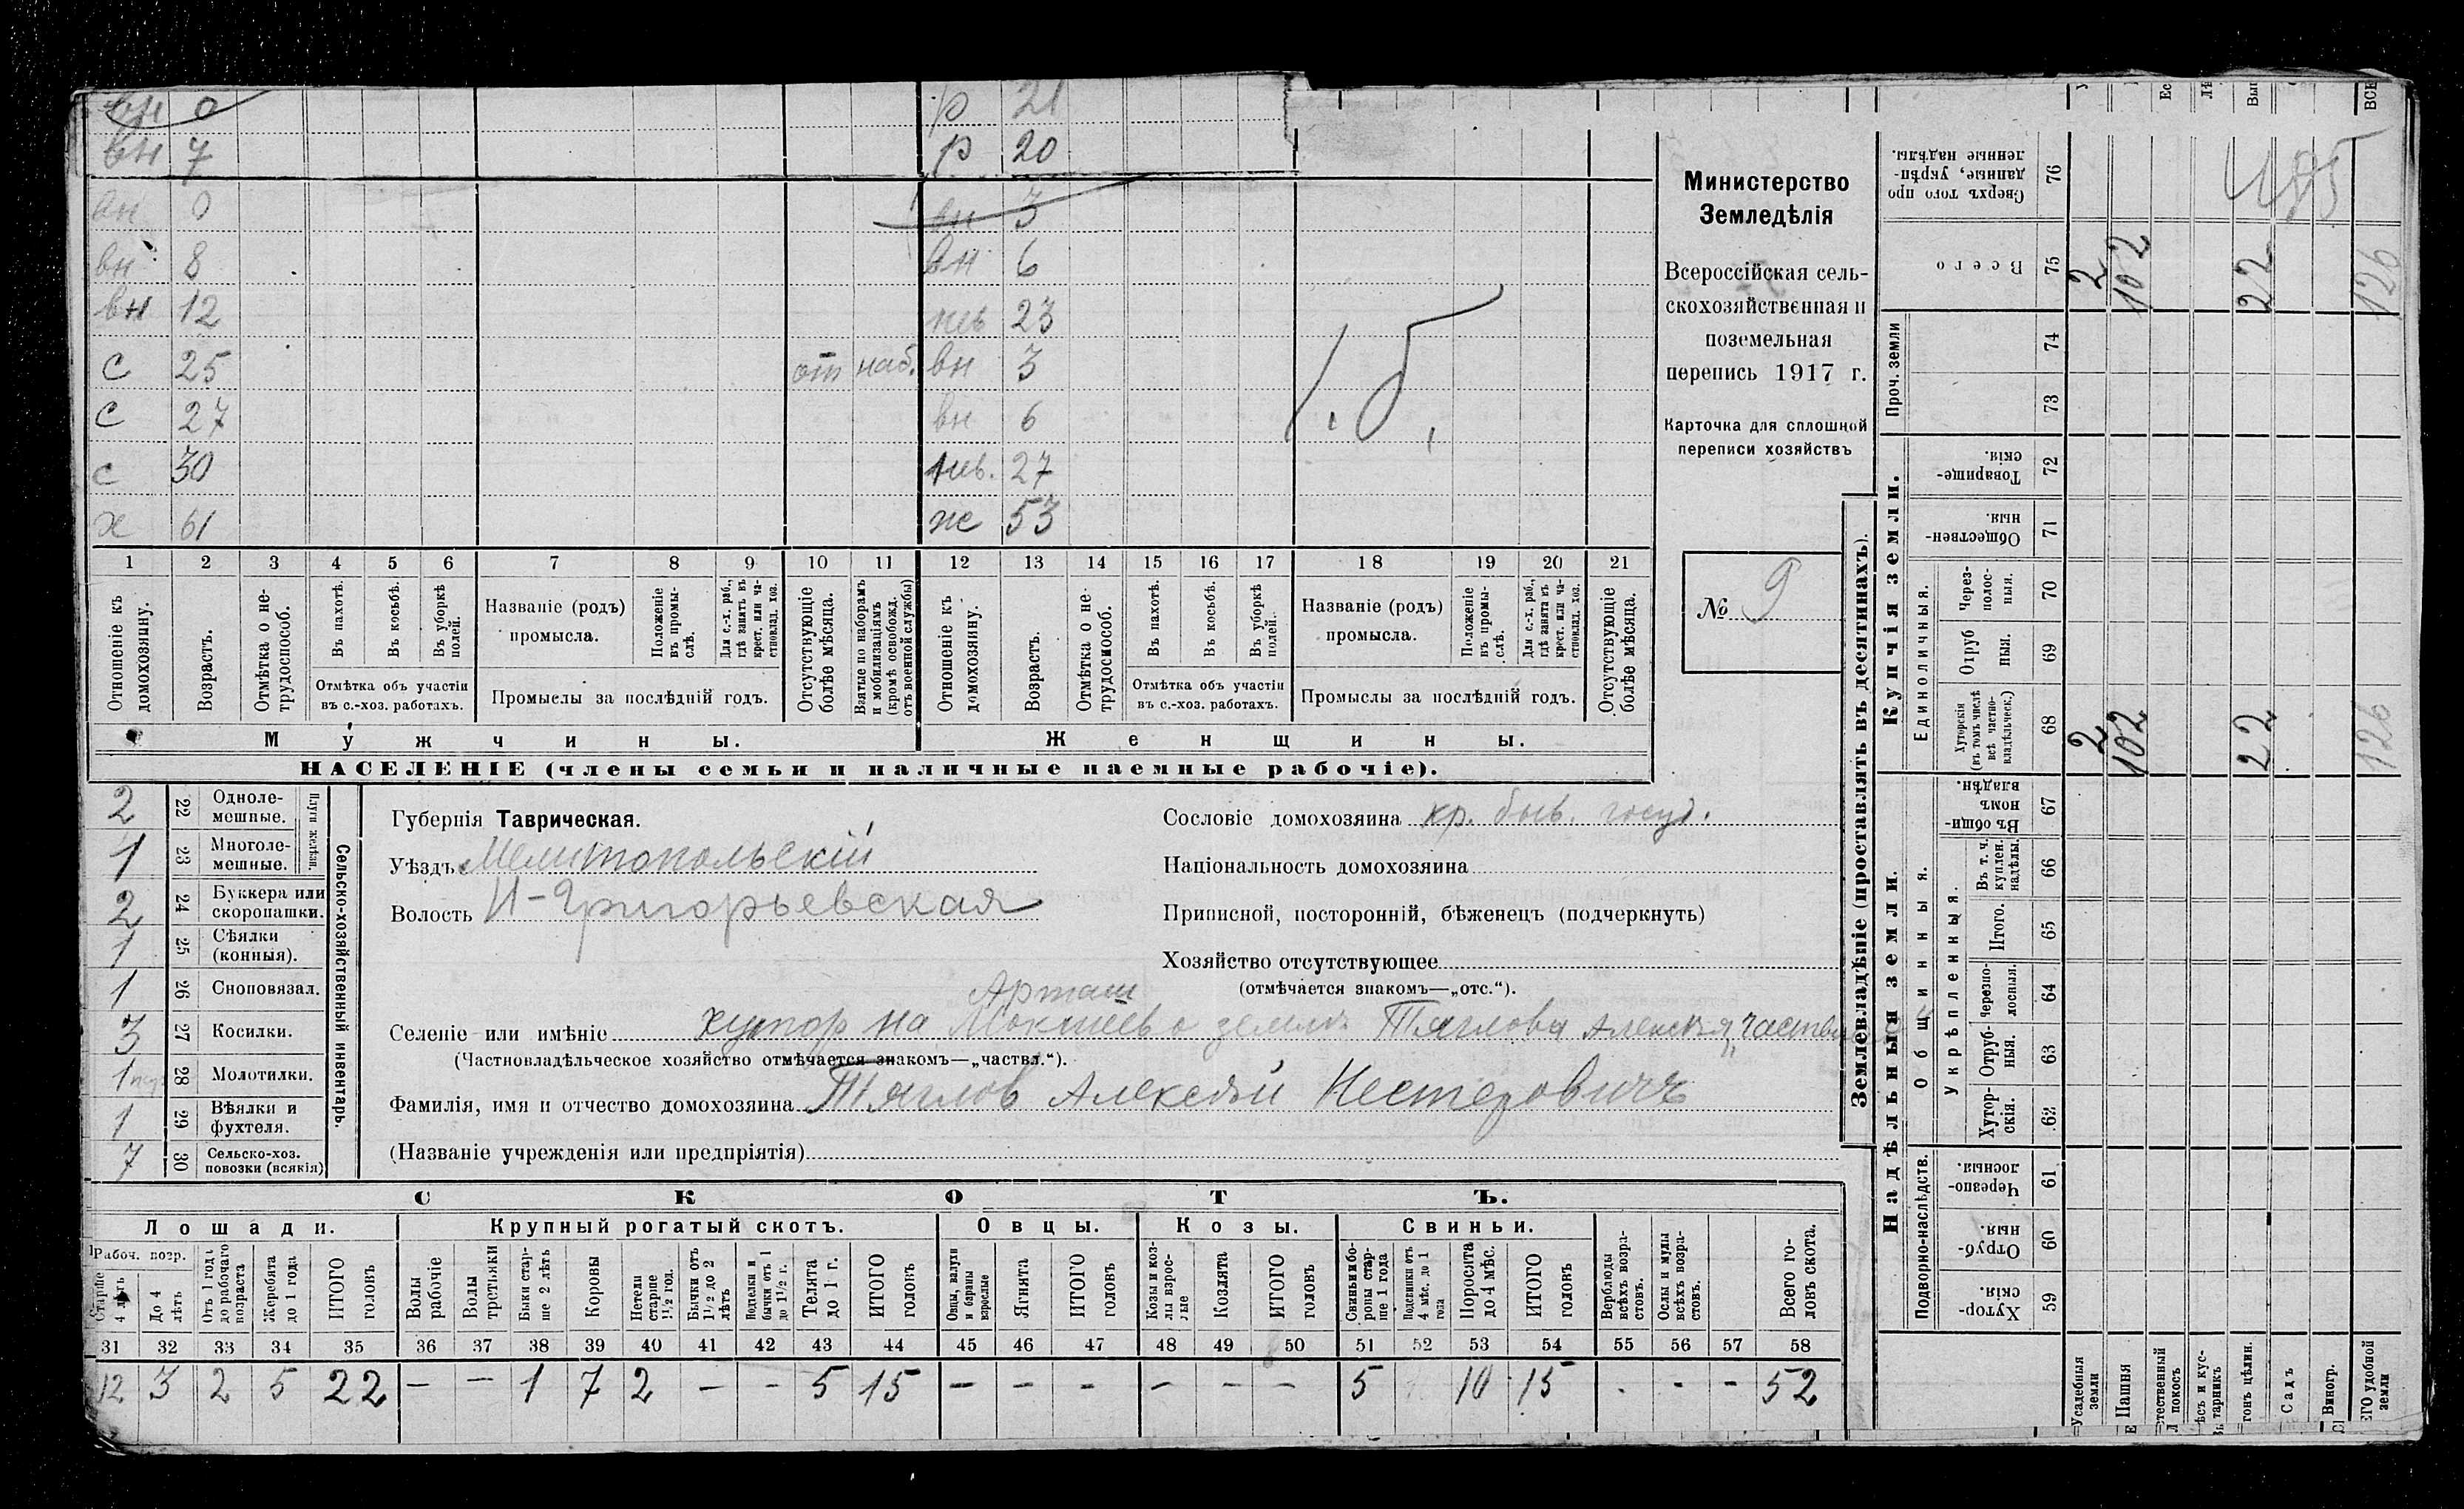 вн 0 р 21
вн 7 р 20
вн 0 вн 3
вн 8 вн 6
вн 12 нев 23
с 25 от наб. вн 3
с 27 вн 6
с 30 нев. 27
х 61 ж 53
1 2 3 4 5 6 7 8 9 10 11 12 13 14 15 16 17 18 19 20 21
Отношеніе къ домохозяину.
Возрастъ.
Отмѣтка о не-трудоспособ.
Въ пахотѣ.
Въ косьбѣ.
Въ уборкѣ полей.
Отмѣтка объ участіи
въ с.-хоз. работахъ.
Названіе (родъ)
промысла.
Положеніе въ промы-слѣ.
Для с.-х. раб., гдѣ занятъ въ крест. или ча-стновлад. хоз.
Промыслы за послѣдній годъ.
Отсутствующіе болѣе мѣсяца.
Взятые по наборамъ и мобилизаціямъ (кромѣ освобожд. отъ военной службы)
Отношеніе къ домохозяину.
Возрастъ.
Отмѣтка о не-трудоспособ.
Въ пахотѣ.
Въ косьбѣ.
Въ уборкѣ полей.
Отмѣтка объ участіи
въ с.-хоз. работахъ.
Названіе (родъ)
промысла.
Положеніе въ промы-слѣ.
Для с.-х. раб., гдѣ занята въ крест. или ча-стновлад. хоз.
Промыслы за послѣдній годъ.
Отсутствующіе болѣе мѣсяца.
Мужчины. Женщины.
НАСЕЛЕНІЕ (члены семьи и наличные наемные рабочіе).
Министерство
Земледѣлія
Всероссійская сель-
скохозяйственная и
поземельная
перепись 1917 г.
Карточка для сплошной
переписи хозяйствъ
№ 9
2 22 Одноле-мешные.
1 23 Многоле-мешные.
Плуги желѣзн.
2 24 Буккера или скоропашки.
1 25 Сѣялки (конныя).
1 26 Сноповязал.
3 27 Косилки.
1 28 Молотилки.
1 29 Вѣялки и фухтеля.
7 30 Сельско-хоз. повозки (всякія)
Сельско-хозяйственный инвентарь.
Губернія Таврическая.
Уѣздъ Мелитопольскій
Волость Н-Григорьевская
Сословіе домохозяина кр. быв. госуд.
Національность домохозяина
Приписной, посторонній, бѣженецъ (подчеркнуть)
Хозяйство отсутствующее
(отмѣчается знакомъ—„отс.“).
Селеніе или имѣніе хутор на земле Тяглова Алексѣя
(Частновладѣльческое хозяйство отмѣчается знакомъ—„частвл.“).
Фамилія, имя и отчество домохозяина Тяглов Алексѣй Нестеровичъ
(Названіе учрежденія или предпріятія)
СКОТЪ.
Лошади. Крупный рогатый скотъ. Овцы. Козы. Свиньи.
Рабоч. возр.
Старше 4 лѣтъ
До 4 лѣтъ
Отъ 1 года до рабочаго возраста
Жеребята до 1 года
ИТОГО головъ
Волы рабочіе
Волы третьяки
Быки стар-ше 2 лѣтъ
Коровы
Нетели старше 1½ год.
Бычки отъ 1½ до 2 лѣтъ
Подтелки и бычки отъ 1 до 1½ г.
Телята до 1 г.
ИТОГО головъ
Овцы, валухи и бараны взрослые
Ягнята
ИТОГО головъ
Козы и коз-лы взрос-лые
Козлята
ИТОГО головъ
Свиньи и бо-ровы стар-ше 1 года
Подсвинки отъ 4 мѣс. до 1 года
Поросята до 4 мѣс.
ИТОГО головъ
Верблюды всѣхъ возра-стовъ.
Ослы и мулы всѣхъ возра-стовъ.
Всего го-ловъ скота.
31 32 33 34 35 36 37 38 39 40 41 42 43 44 45 46 47 48 49 50 51 52 53 54 55 56 57 58
12 3 2 5 22 — — 1 7 2 — — 5 15 — — — — — — 5 10 15 - - - 52
Землевладѣніе (проставлять въ десятинахъ).
Купчія земли.
Надѣльныя земли.
Сверхъ того про данные, укрѣп-ленные надѣлы. 76
Всего 75 2 102 22 126
Проч. земли 74 73
Товарище-скія. 72
Обществен-ныя. 71
Единоличныя.
Через-полос-ныя. 70
Отруб ныя. 69
Хуторскія (въ томъ числѣ всѣ частно-владѣльческ.) 68 2 102 22 126
Общинныя.
Въ общи-номъ владѣн. 67
Укрѣпленныя.
Въ т. ч. куплен. надѣлы. 66
Итого. 65
Черезпо-лосныя. 64
Отруб-ныя. 63
Хутор-скія. 62
Подворно-наслѣдств.
Черезпо-лосныя. 61
Отруб-ныя. 60
Хутор-скія. 59
Усадебныя земли
Пашня
тественный покосъ
ѣсъ и кус-тарникъ
гонъ цѣлин.
Садъ
Виногр.
ЕГО удобной земли